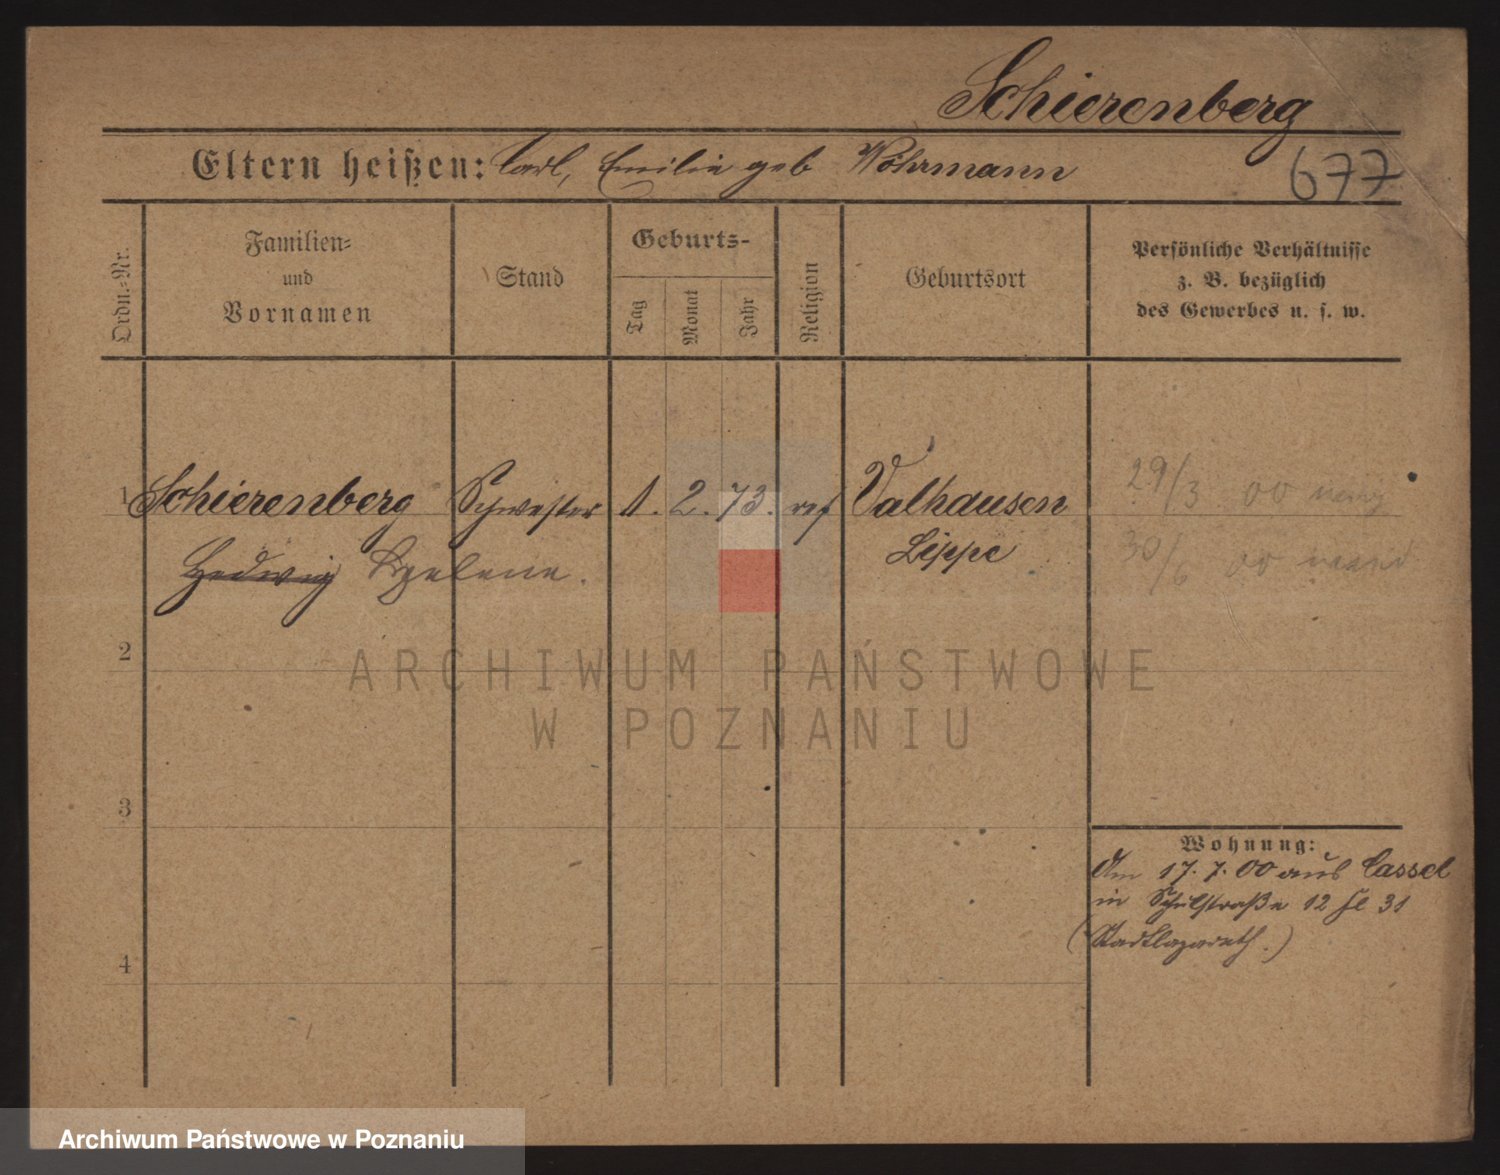 Schierenberg
Eltern heißen: Carl, Emilie geb Wöhrmann
677
Ordn.-Nr.
Familien-
und
Vornamen
Stand
Geburts-
Tag
Monat
Jahr
Religion
Geburtsort
Persönliche Verhältnisse
z. B. bezüglich
des Gewerbes u. s. w.
1 Schierenberg Schwester 1. 2. 73. ref Valhausen 29/3 00
Hedwig Lippe 30/6 00
2
3
4
Wohnung:
Am 17. 7. 00 aus Cassel
in Schulstraße 12 31
(Stadtlazareth.)
ARCHIWUM PAŃSTWOWE
W POZNANIU
Archiwum Państwowe w Poznaniu